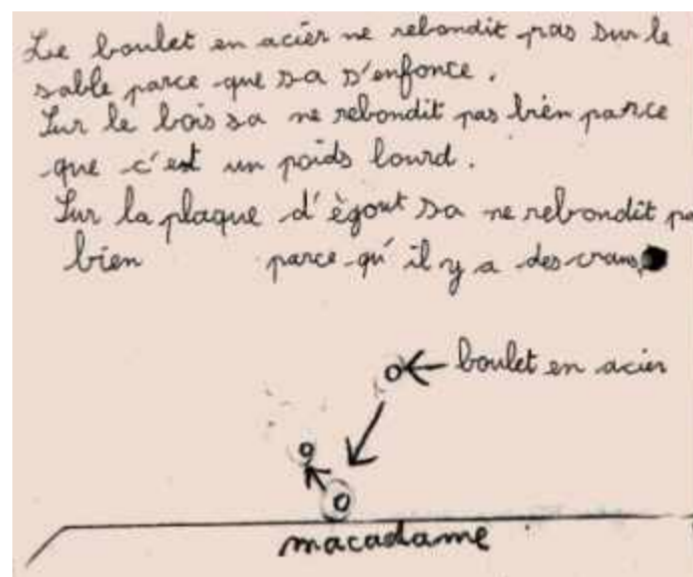 Le boulet en acier ne rebondit pas sur le
sable parce que sa s'enfonce.
Sur le bois sa ne rebondit pas bien parce
que c'est un poids lourd.
Sur la plaque d'ègout sa ne rebondit pa
bien parce qu'il y a des crans
boulet en acier
macadame